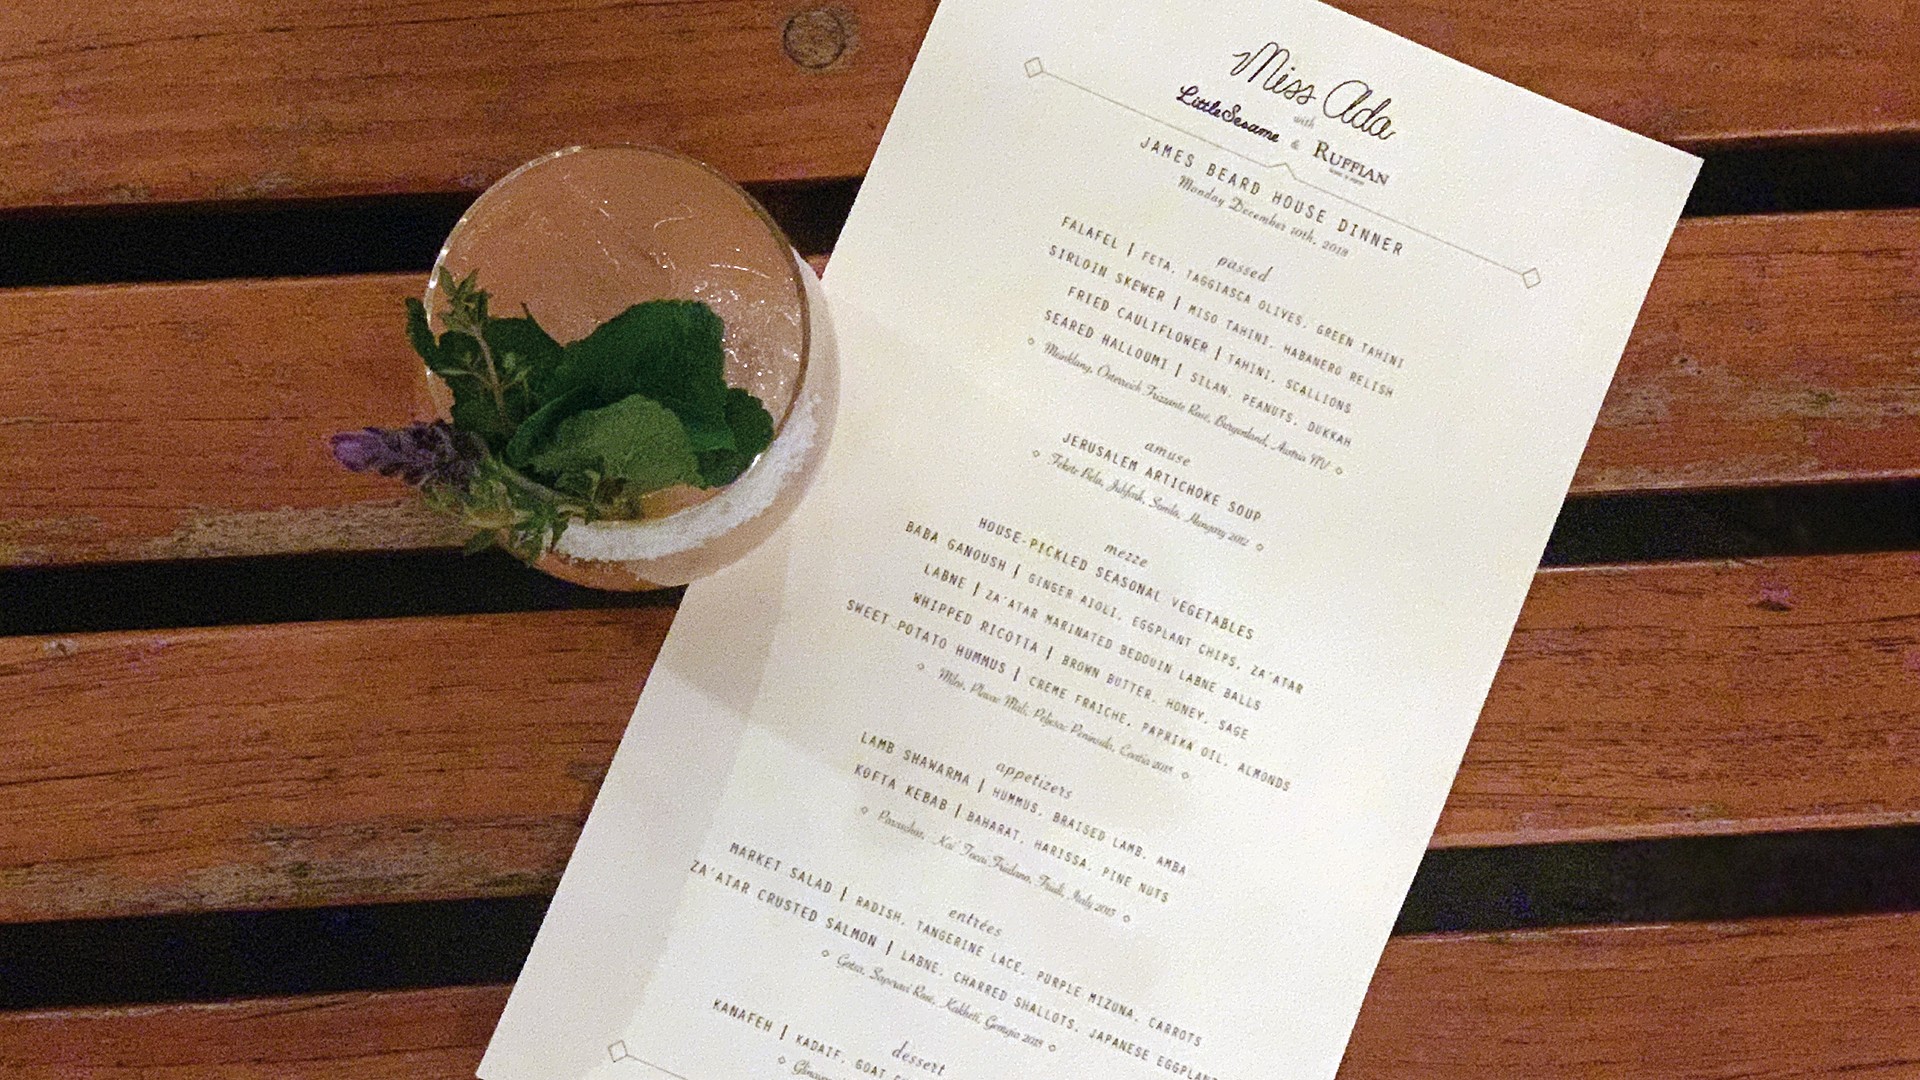 Miss Ada
with
LittleSesame & RUFFIAN
JAMES BEARD HOUSE DINNER
Monday December 10th, 2018
passed
FALAFEL | FETA, TAGGIASCA OLIVES, GREEN TAHINI
SIRLOIN SKEWER | MISO TAHINI, HABANERO RELISH
FRIED CAULIFLOWER | TAHINI, SCALLIONS
SEARED HALLOUMI | SILAN, PEANUTS, DUKKAH
Meinklang, Osterreich Frizzante Rosé, Burgenland, Austria NV
amuse
JERUSALEM ARTICHOKE SOUP
Fekete Bela, Juhfark, Somlo, Hungary 2012
mezze
HOUSE-PICKLED SEASONAL VEGETABLES
BABA GANOUSH | GINGER AIOLI, EGGPLANT CHIPS, ZA'ATAR
LABNE | ZA'ATAR MARINATED BEDOUIN LABNE BALLS
WHIPPED RICOTTA | BROWN BUTTER, HONEY, SAGE
SWEET POTATO HUMMUS | CREME FRAICHE, PAPRIKA OIL, ALMONDS
Milos, Plavac Mali, Peljesac Peninsula, Croatia 2015
appetizers
LAMB SHAWARMA | HUMMUS, BRAISED LAMB, AMBA
KOFTA KEBAB | BAHARAT, HARISSA, PINE NUTS
Paraschos, Kai' Tocai Friulano, Friuli, Italy 2015
entrées
MARKET SALAD | RADISH, TANGERINE LACE, PURPLE MIZUNA, CARROTS
ZA'ATAR CRUSTED SALMON | LABNE, CHARRED SHALLOTS, JAPANESE EGGPLANT
Gotsa, Saperavi Rosé, Kakheti, Georgia
dessert
KANAFEH | KADAIF, GOAT